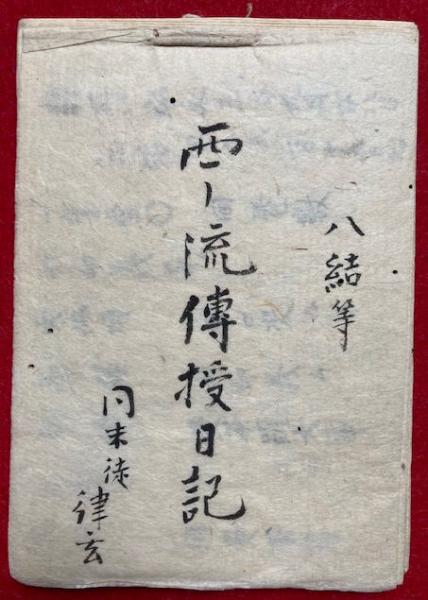 八結等
西ノ流傳授日記
末徒
律玄